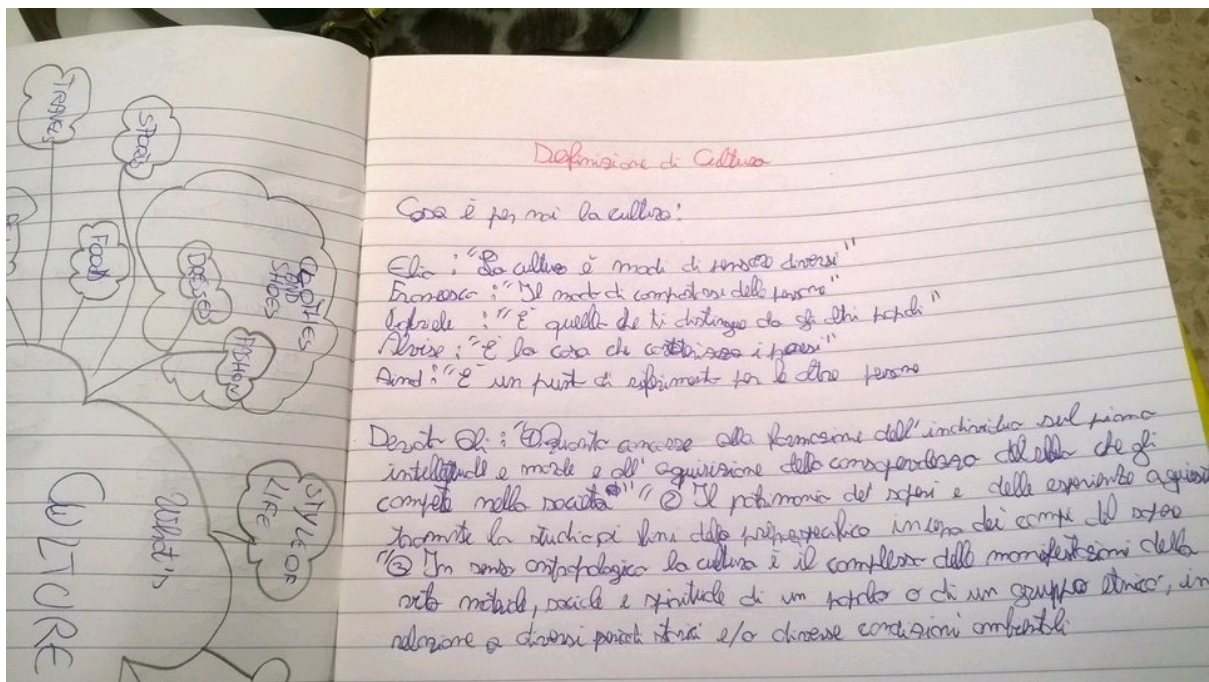 TRAVELS
SPORTS
FOOD
DRESSED
CLOTHES
AND
SHOES
FASHION
STYLE OF
LIFE
What's
CULTURE
Definizione di Cultura
Cosa è per noi la cultura:
Elia: "La cultura è modi di pensare diversi"
Francesca: "Il modo di comportarsi delle persone"
: "È quella che ti distingue da gli altri popoli"
Alvise: "È la cosa che i paesi"
: "È un punt di riferimento per le altre persone
: "① Quanto concorre alla formazione dell'individuo sul piano
intellettuale e morale e all' aquisizione della consapevolezza del che gli
compete nella società" "② Il patrimonio del saperi e delle esperienze
tramite lo studio dei campi del sapere
"③ In senso la cultura è il complesso delle manifestazioni della
vita materiale, sociale e spirituale di un popolo o di un gruppo etnico, in
relazione a diversi periodi storici e/o diverse condizioni ambientali